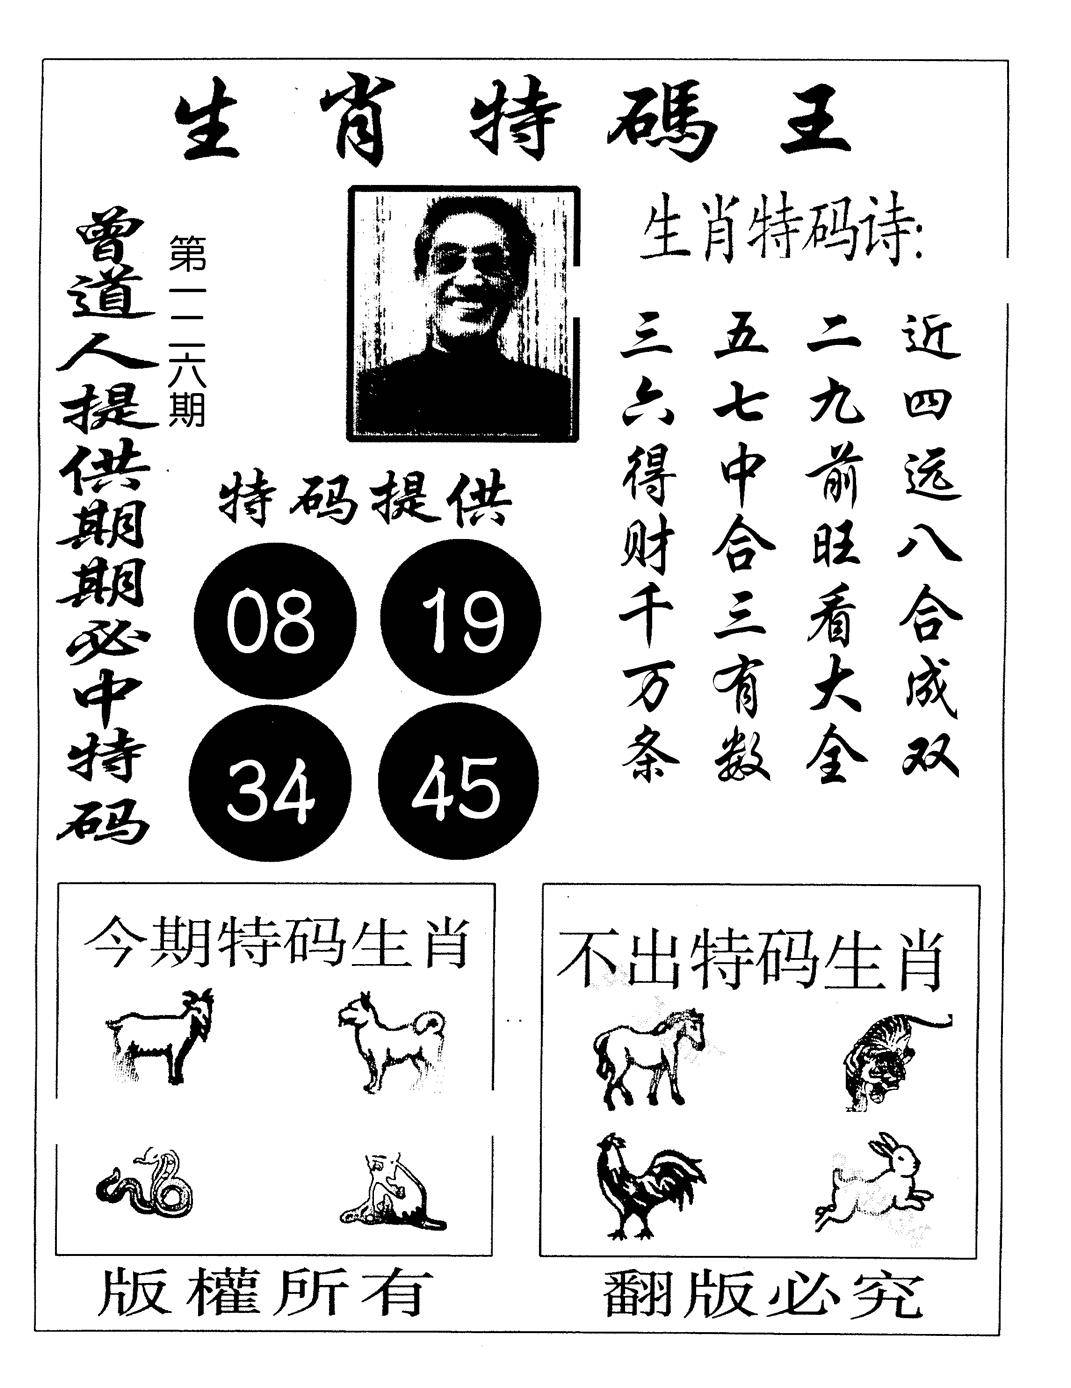 生肖特碼王
曾道人提供期期必中特码
第一二六期
特码提供
08 19
34 45
生肖特码诗:
近四远八合成双
二九前旺看大全
五七中合三有数
三六得财千万条
今期特码生肖
不出特码生肖
版權所有
翻版必究